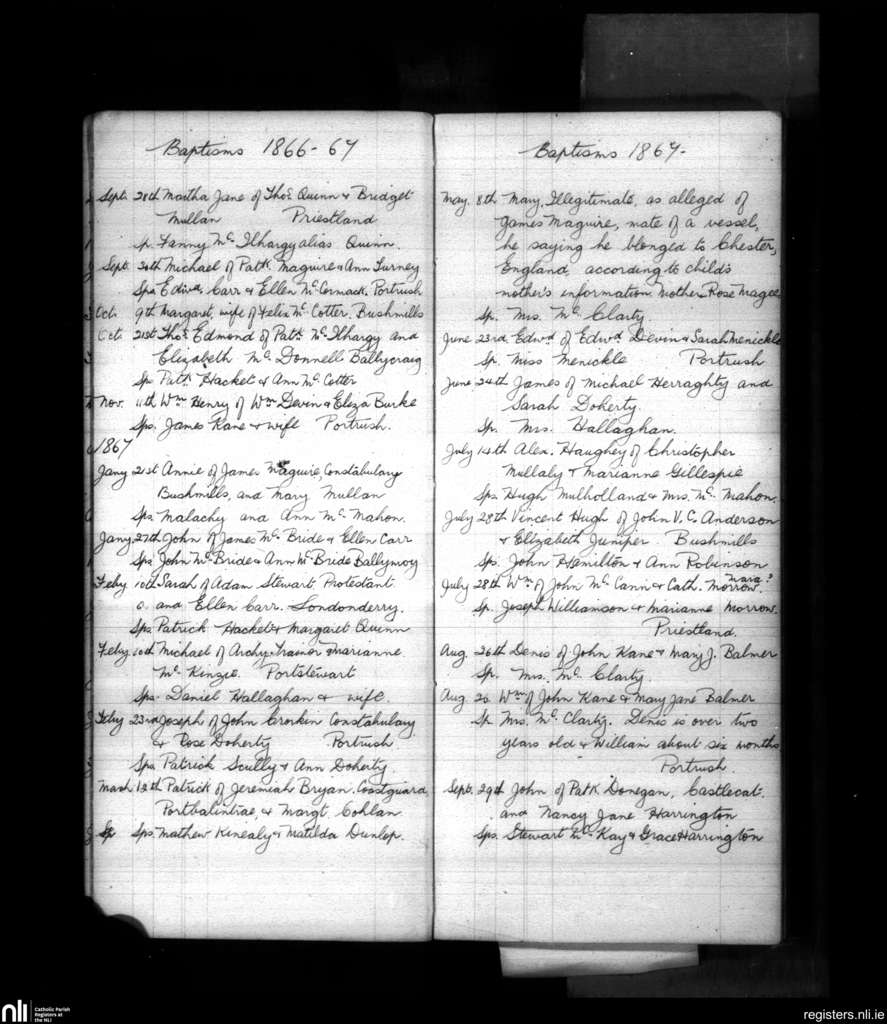 Baptisms 1866-67
Sept. 28th Martha Jane of Thos. Quinn & Bridget
Mullan Priestland
sp. Fanny Mc Ilhargy alias Quinn.
Sept. 30th Michael of Patk. Maguire & Ann Turney
Sps. Edwd. Carr & Ellen McCormack. Portrush
Oct. 9th Margaret, wife of Felix Mc Cotter. Bushmills
Oct. 21st Thos. Edmond of Patk. Mc Ilhargy and
Elizabeth Mc Donnell Ballycraig
Sp. Patk. Hacket & Ann Mc Cotter
Nov. 11th Wm. Henry of Wm. Devin & Eliza Burke
Sps. James Kane & wife Portrush.
1867
Jany 21st Annie of James Maguire, Constabulary
Bushmills, and Mary Mullan
Sps. Malachy and Ann Mc Mahon.
Jany. 27th John of James Mc Bride & Ellen Carr
Sps. John Mc Bride & Ann Mc Bride Ballymoy
Feby 10th Sarah of Adam Stewart Protestant
and Ellen Carr. Londonderry.
Sps. Patrick Hacket & Margaret Quinn
Feby. 10th Michael of Archy. Trainor & Marianne
Mc Kinzie. Portstewart
Sps. Daniel Hallaghan & wife.
Feby 23rd Joseph of John Crorkin Constabulary
& Rose Doherty Portrush
Sps. Patrick Scully & Ann Doherty.
March 12th Patrick of Jeremiah Bryan. Coastguard
Portbalintrae, & Margt. Cohlan
Sp Sps. Mathew Kinealy & Matilda Dunlop.
Baptisms 1867-
May. 8th Mary, Illegitimate, as alleged of
James Maguire, mate of a vessel,
he saying he blonged to Chester,
England, according to child's
mother's information. Mother Rose Magee
Sp. Mrs. Mc Clarty
June 23rd. Edwd of Edwd Devin & Sarah Menickle
Sp. Miss Menickle Portrush
June 24th James of Michael Herraghty and
Sarah Doherty.
Sp. Mrs. Hallaghan.
July 14th Alex. Haughey of Christopher
Mullaly & Marianne Gillespie
Sps. Hugh Mulholland & Mrs. Mc Mahon.
July 28th Vincent Hugh of John V. C. Anderson
& Elizabeth Juniper. Bushmills
Sps. John Hamilton & Ann Robinson
July 28th Wm. of John Mc Cann & Cath. Morrow. Mara?
Sp. Joseph Williamson & Marianne Morrow.
Priestland.
Aug. 26th Denis of John Kane & Mary J. Balmer
Sp. Mrs. Mc Clarty.
Aug 26 Wm. of John Kane & Mary Jane Balmer
Sp. Mrs. Mc Clarty. Denis is over two
years old & William about six months
Portrush.
Sept. 29th John of Patk. Donegan, Castlecat.
and Nancy Jane Harrington
Sps. Stewart Mc Kay & Grace Harrington
nli Catholic Parish
Registers at
the NLI
registers.nli.ie